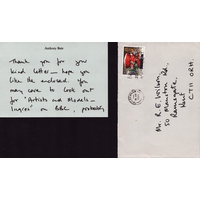 Anthony Bate
Thank you for your
kind letter — hope you
like the enclosed. You
may care to look out
for "Artists and Models —
Ingres" on BBC, probably
Mr. R. E. Wilson,
50 Marston Rd,
Ramsgate,
Kent
CT11 0RH.